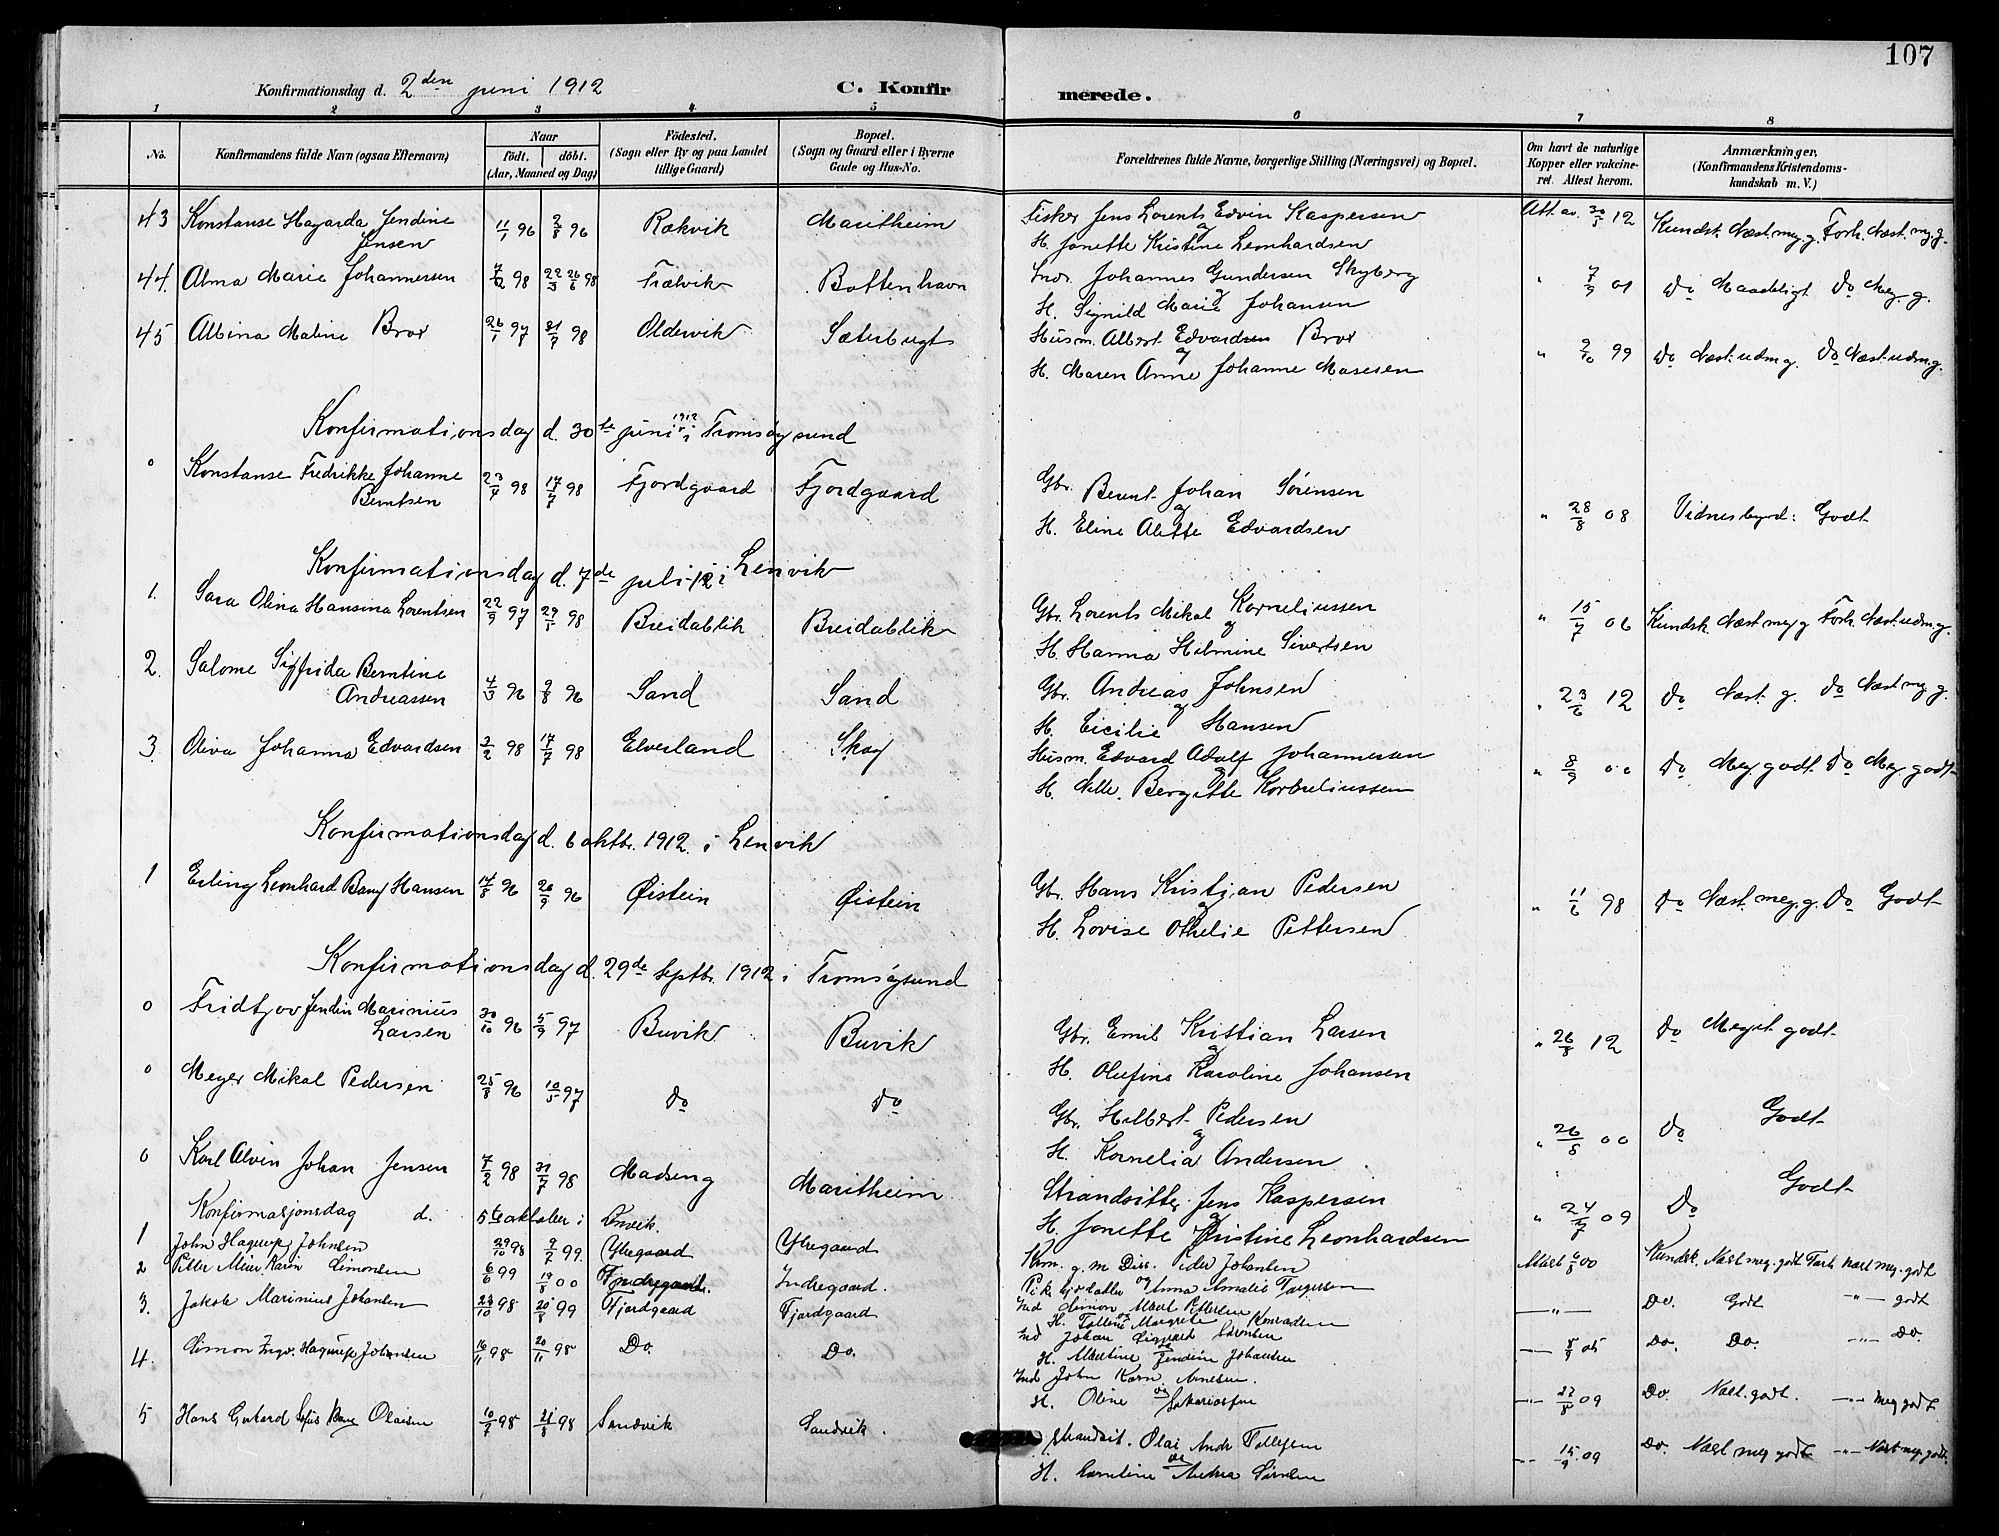 107
Konfirmationsdag d. 2den juni 1912 C. Konfirmerede.
1 2 3 4 5 6 7 8
No. Konfirmandens fulde Navn (ogsaa Efternavn) Naar födt. döbt. (Aar, Maaned og Dag) Födested. (Sogn eller By og paa Landet tillige Gaard) Bopæl. (Sogn og Gaard eller i Byerne Gade og Hus-No. Forældrenes fulde Navne, borgerlige Stilling (Næringsvei) og Bopæl. Om havt de naturlige Kopper eller vakcineret. Attest herom. Anmærkninger, (Konfirmandens Kristendomskundskab m. V.)
43 Konstanse Hagarda Jendine Jensen 11/1 96 2/8 96 Rækvik Maritheim Fisker Jens Lorents Edvin Kaspersen og Att. av. 30/5 12 Kundsk. Næst meg. g. Forh. Næst. meg. g.
H. Jonette Kristine Leonhardsen
44. Alma Marie Johannessen 7/2 98 22/5 26/6 98 Trælvik Bottenhavn Indr. Johannes Gundersen Skyberg og " 7/9 01 Do Maadeligt Do Meg. g.
H. Signild Marie Johansen
45 Albina Maline Brox 26/1 97 31/7 98 Oldervik Sæterbugt Husm. Albert Edvardsen Brox og " 9/10 99 Do Næst. udm g. Do Næst. udm. g.
H. Maren Anne Johanne Mosesen
Konfirmationsdag d. 30te juni 1912 i Tromsøysund
0 Konstanse Fredrikke Johanne Berntsen 23/4 98 17/7 98 Fjordgaard Fjordgaard Gbr. Bernt Johan Sørensen og " 28/8 08 Vidnesbyrd: Godt
H. Eline Alette Edvardsen
Konfirmationsdag d. 7de juli -12 i Lenvik
1. Sara Olina Hansina Lorentsen 22/9 97 29/5 98 Breidablik Breidablik Gbr. Lorents Mikal Korneliussen og " 15/7 06 Kundsk. Næst meg g Forh. Næst udm. g.
H. Hanna Hilmine Sivertsen
2. Salome Sigfrida Berntine Andreassen 4/3 96 9/8 96 Sand Sand Gbr. Andreas Johnsen og " 23/6 12 Do Næst. g. Do Næst meg. g.
H. Cicilie Hansen
3. Oliva Johanna Edvardsen 3/2 98 17/7 98 Elverland Skog Husm. Edvard Adolf Johannessen og " 8/9 00 Do Meg godt Do Meg godt
H. Nille. Bergitte Korneliussen
Konfirmationsdag d. 6 oktbr. 1912. i Lenvik
1 Erling Leonhard Bang Hansen 14/8 96 20/9 96 Øistein Øistein Gbr. Hans Kristjan Pedersen og " 11/6 98 Do Næst. meg. g. Do Godt
H. Lovise Othelie Pettersen
Konfirmationsdag d. 29de septbr. 1912 i Tromsøysund
0 Fridtjov Jendin Marinius Larsen 30/10 96 5/9 97 Buvik Buvik Gbr. Emil Kristian Larsen og " 26/8 12 Do Meget godt
H. Olufine Karoline Johansen
0 Meyer Mikal Pedersen 25/8 96 10/5 97 Do Do Gbr. Hilbert Pedersen og " 26/8 00 Do Godt
H. Kornelia Andersen
0 Karl Alvin Johan Jensen 7/2 98 31/7 98 Madseng Maritheim Strandsitter Jens Kaspersen og " 24/9 09 Do Godt
H. Jonette Kristine Leonhardsen
Konfirmasjonsdag d. 5te oktober i Lenvik.
1 John Hagerup Johnsen 29/10 98 9/7 99. Ytregaard Ytregaard Kirn. g. m Diss. Peder Johansen og Attest 6/8 00 Kundsk. Næst meg. godt Forh næst meg. godt
Pike Anna Amalie Torgersen
2 Petter Meier Karon Simonsen 6/6 99 19/8 00 Indregaard. Indregaard. Ind Simon Albert Pettersen og —"— Do. Godt —"— godt
H. Tolline Margrete Konradsen
3. Jakob Marinius Johansen 23/10 98 20/8 99 Fjordgaard Fjordgaard Ind Johan Sigvard Sørensen og —"— 8/9 05 Do. Do. —"— Do.
H. Martine Jendine Johansen
4. Simon Ingv. Hagerup Johnsen 16/11 98 20/11 98 Do. Do. Ind John Karn. Arnesen. og —"— 22/8 09 Do Næst. godt. —"— meg godt
H. Oline Sakariassen
5 Hans Gerhard Sofus Bang Olaisen 10/7 98 21/8 98 Sandvik Sandvik. Strandsit. Olai Andr Tollefsen og —"— 15/9 09 Do. Næst meg godt —"— Næst meg. godt.
H. Karoline Andrea Simonsen